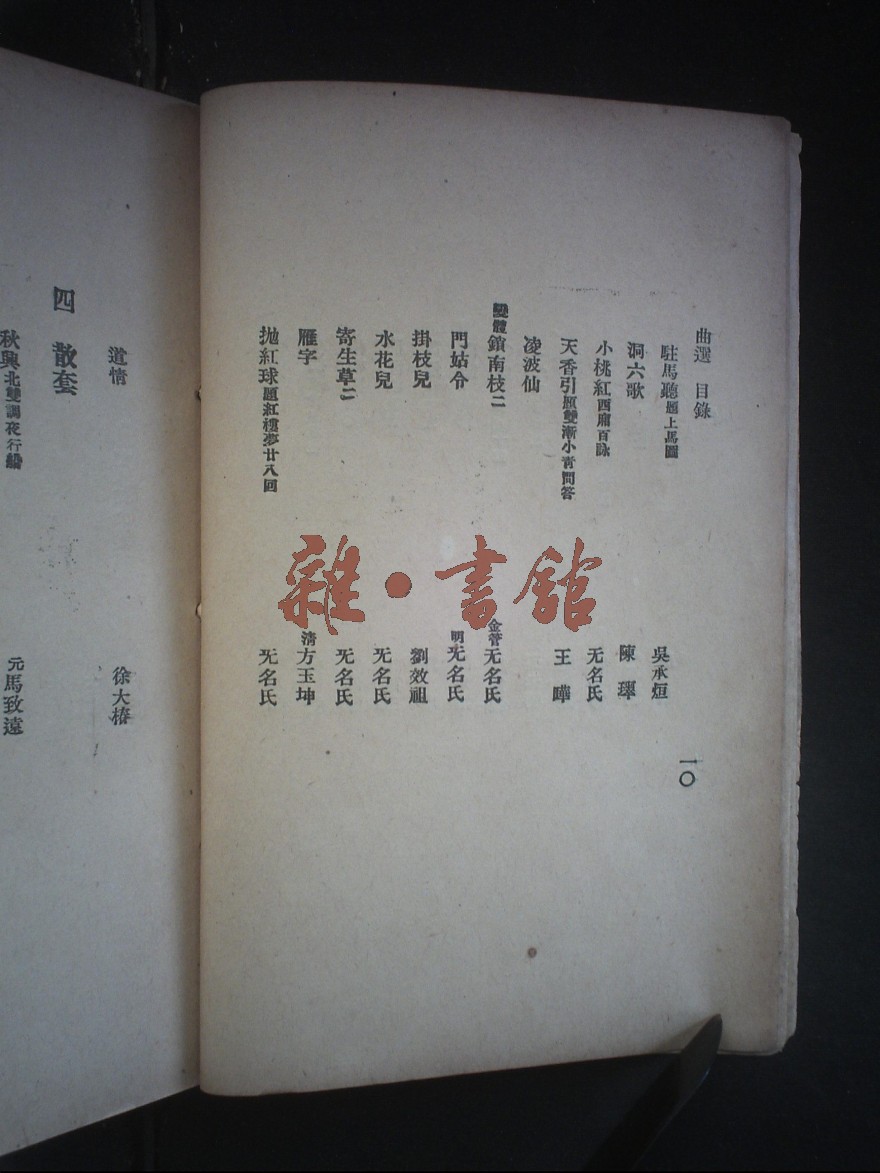 曲選 目錄
駐馬聽題上馬圖 吳承烜
洞六歌 陳 璻
小桃紅西廂百詠 无名氏
天香引照雙漸小青問答 王 曄
凌波仙
雙體鎖南枝二 金菅无名氏
門姑令 明无名氏
掛枝兒 劉效祖
水花兒 无名氏
寄生草二 无名氏
雁字 清方玉坤
拋紅球題紅樓夢廿八回 无名氏
一〇
道情 徐大椿
四 散套
秋興北雙調夜行船 元馬致遠
雜·書館